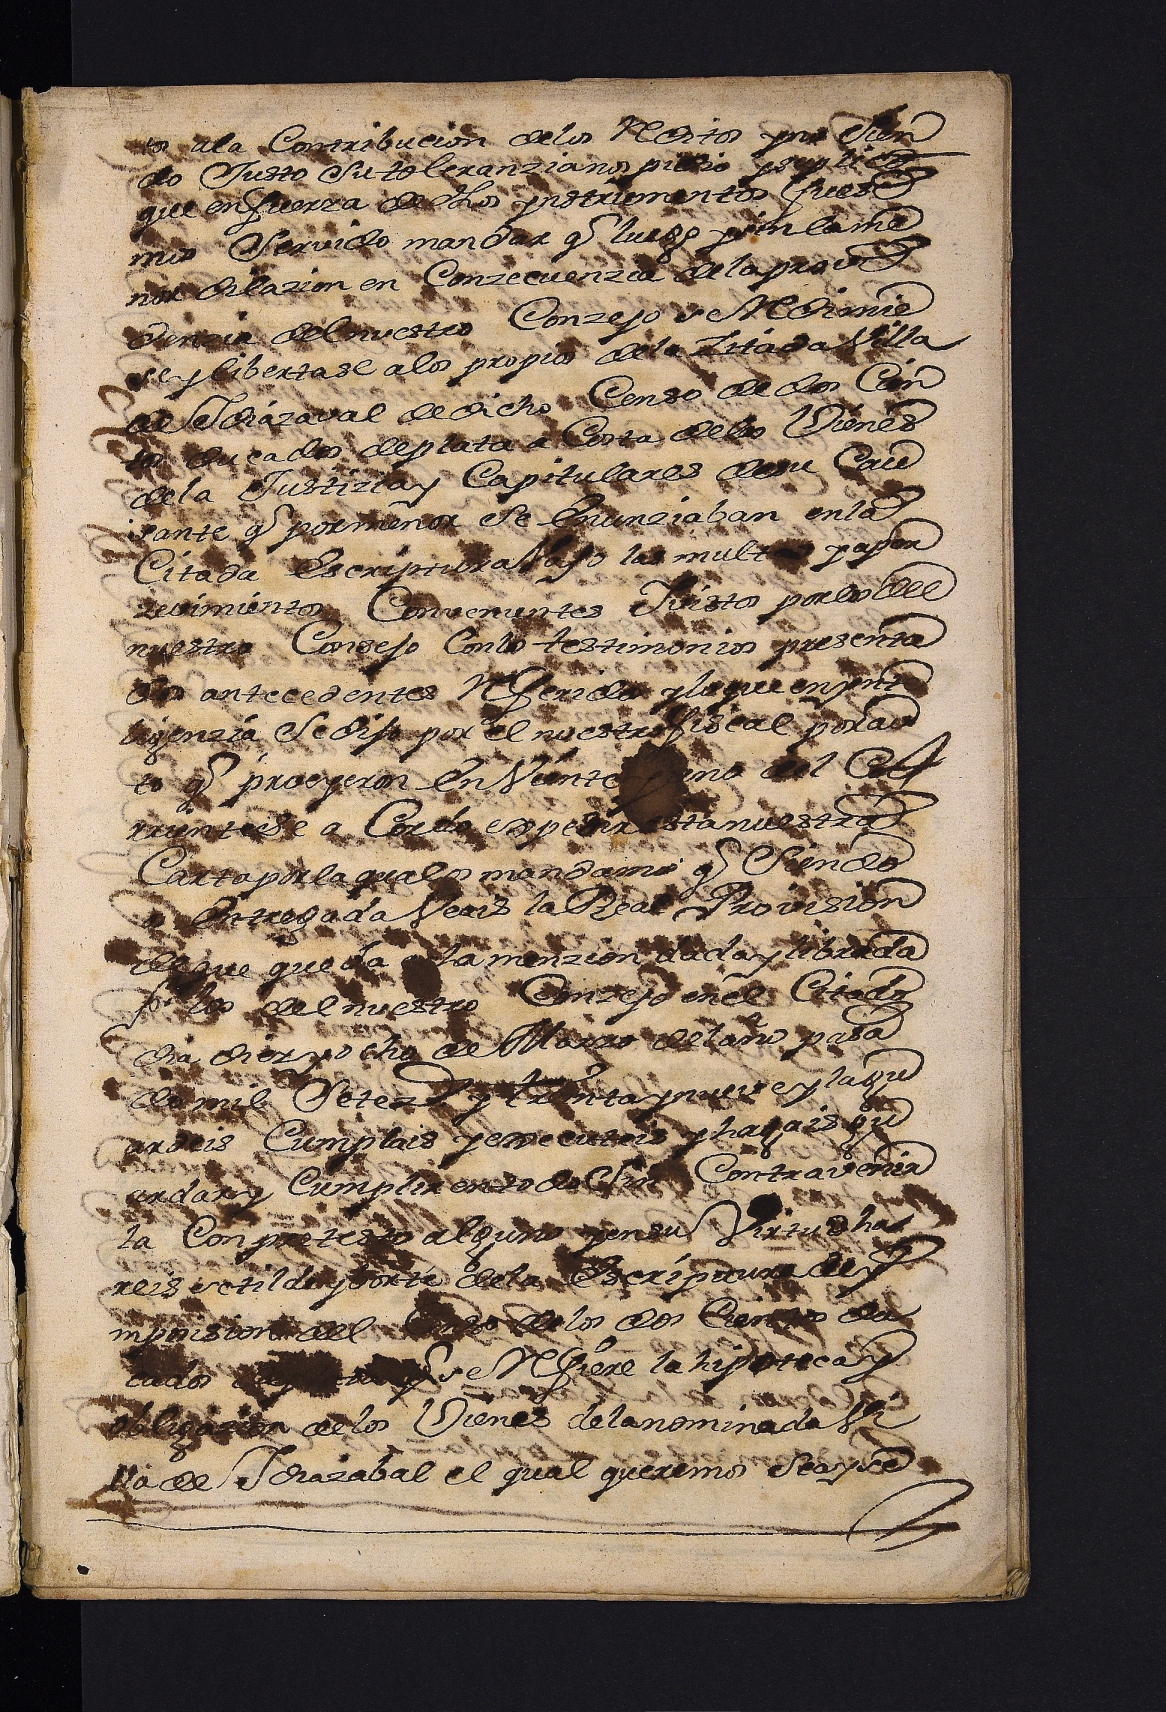 tos ala Contribucion delos Reditos yno sien
do Justo Sutoleranzia nos pidio ysuplico
que enfuerza de dhos ynstrumentos fuese
mos Servido mandar q̃ luego ysin lame
nor dilazion en Conzecuenzia dela provi
denzia del nuestro Conzejo se Redimie
se ylibertase alos propios dela Zitada Villa
de Idiazaval de dicho Censo de dos Cien
tos ducados deplata a Costa delos Vienes
dela Justizia y Capitulares desu Cau
sante q̃ pormenor se Enunziaban enla
Citada Escriptura Vajo las multas yaper
zevimientos Convenientes Ivisto porlos del
nuestro Consejo Conlos testimonios presenta
dos antecedentes Referidos yloque enynte
ligenzia Sedijo por el nuestro fiscal porau
to q̃ proveyeron En Veinte yuno del Co
rriente se a Cordo expedir esta nuestra
Carta porla qual os mandamos q̃ Siendo
os Entregada Veais la Real Provision
deque queda a la menzion dada y librada
por los del nuestro Conzejo enel Citado
dia diez yocho de Marzo del año pasa
do mil Setez.s y treinta ynueve y la gu
ardeis Cumplais yexecuteis yhagais gu
ardar y Cumplir entodo Sin Contravenir
la Conpretexto alguno yensu Virtud ha
reis setilde yborre dela Escriptura de y
mposision del Censo delos dos Cientos du
cados deplata q̃ se Refiere la hipoteca y
obligazion delos Vienes delanominada Vi
lla de Idiazabal el qual queremos sea yse